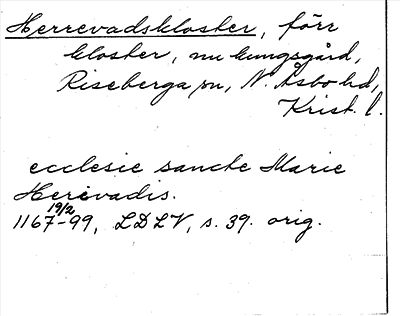 Herrevadskloster, förr
kloster, nu kungsgård,
Riseberga sn, N. Åsbo hd,
Krist. l.
ecclesie sancte Marie
Herèvadis.
19/2
1167-99, LDLV, s. 39. orig.